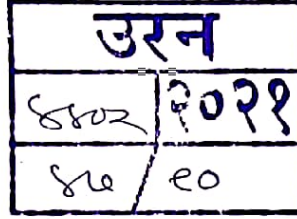 उरन
४४०२ २०२१
४७ / ९०